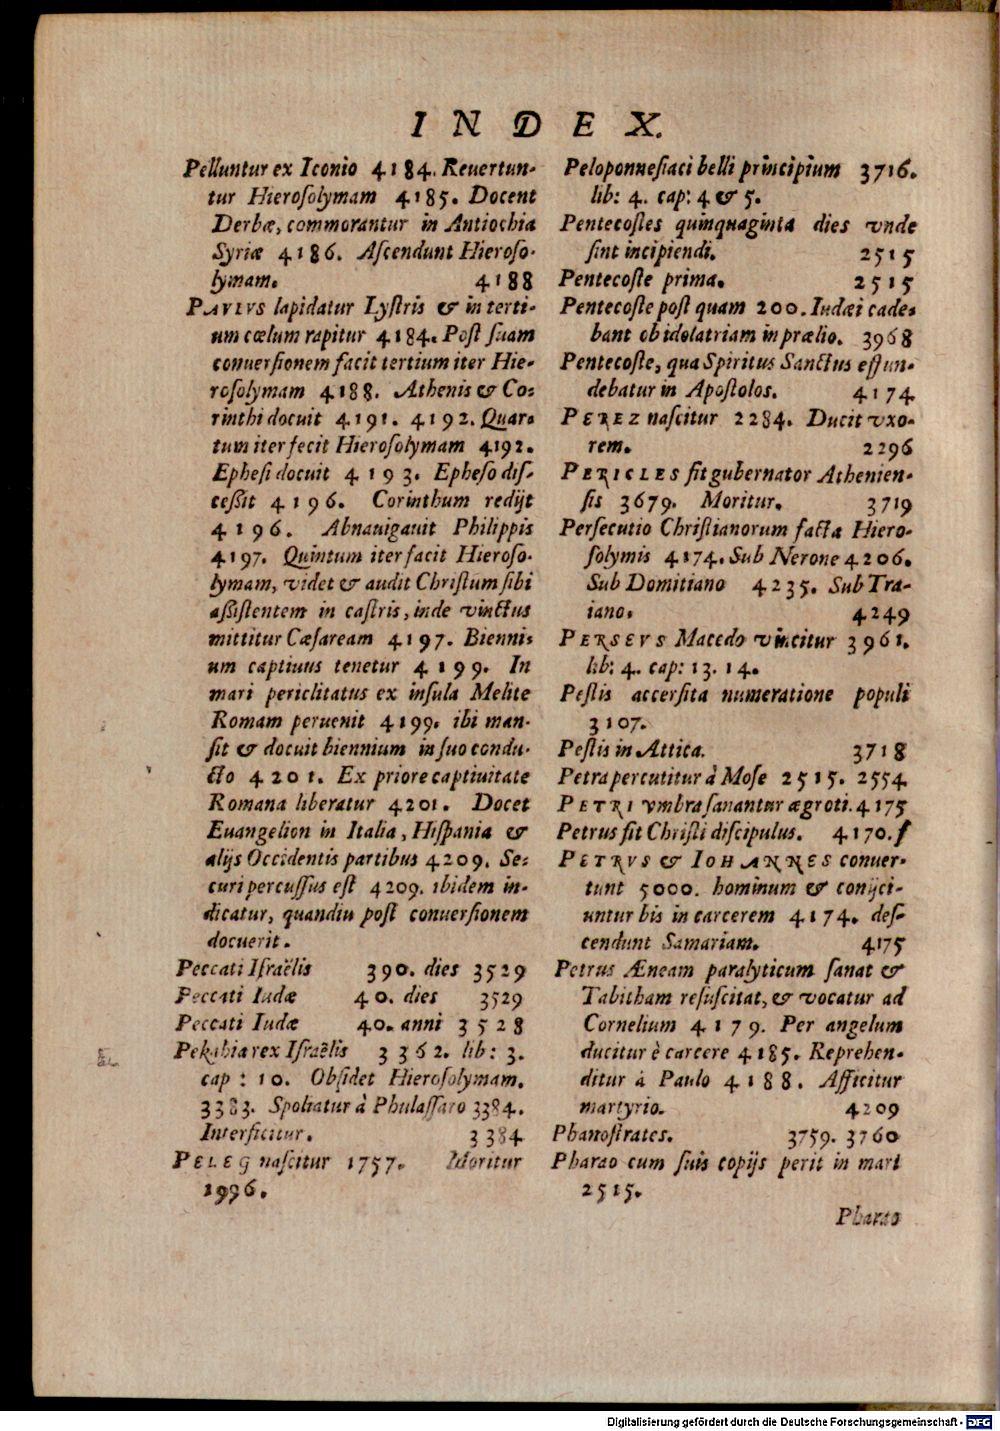 INDEX.
Pelluntur ex Iconio 4184. Reuertun-
tur Hierosolymam 4185. Docent
Derbæ, commorantur in Antiochia
Syriæ 4186. Ascendunt Hieroso-
lymam. 4188
PAVLVS lapidatur Lystris & in terti-
um cœlum rapitur 4184. Post suam
conuersionem facit tertium iter Hie-
rosolymam 4188. Athenis & Co-
rinthi docuit 4191. 4192. Quar-
tum iter fecit Hierosolymam 4192.
Ephesi docuit 4193. Epheso dis-
cessit 4196. Corinthum redijt
4196. Abnauigauit Philippis
4197. Quintum iter facit Hieroso-
lymam, videt & audit Christum sibi
assistentem in castris, inde vinctus
mittitur Cæsaream 4197. Bienni-
um captiuus tenetur 4199. In
mari periclitatus ex insula Melite
Romam peruenit 4199. ibi man-
sit & docuit biennium in suo condu-
cto 4201. Ex priore captiuitate
Romana liberatur 4201. Docet
Euangelion in Italia, Hispania &
alijs Occidentis partibus 4209. Se-
curi percussus est 4209. ibidem in-
dicatur, quandiu post conuersionem
docuerit.
Peccati Israëlis 390. dies 3529
Peccati Iudæ 40. dies 3529
Peccati Iudæ 40. anni 3528
Pekahia rex Israëlis 3362. lib: 3.
cap: 10. Obsidet Hierosolymam.
3383. Spoliatur à Phulassaro 3384.
Interficitur. 3384
PELEG nascitur 1757. Moritur
1996.
Peloponnesiaci belli principium 3716.
lib: 4. cap: 4 & 5.
Pentecostes quinquaginta dies vnde
sint incipiendi. 2515
Pentecoste prima. 2515
Pentecoste post quam 200. Iudæi cade-
bant ob idolatriam in prælio. 3968
Pentecoste, qua Spiritus Sanctus effun-
debatur in Apostolos. 4174
PEREZ nascitur 2284. Ducit vxo-
rem. 2296
PERICLES fit gubernator Athenien-
sis 3679. Moritur. 3719
Persecutio Christianorum facta Hiero-
solymis 4174. Sub Nerone 4206.
Sub Domitiano 4235. Sub Tra-
iano. 4249
PERSEVS Macedo vincitur 3961.
lib: 4. cap: 13. 14.
Pestis accersita numeratione populi
3107.
Pestis in Attica. 3718
Petra percutitur à Mose 2515. 2554
PETRI vmbra sanantur ægroti. 4175
Petrus fit Christi discipulus. 4170. f
PETRVS & IOHANNES conuer-
tunt 5000. hominum & conijci-
untur bis in carcerem 4174. des-
cendunt Samariam. 4175
Petrus Æneam paralyticum sanat &
Tabitham resuscitat, & vocatur ad
Cornelium 4179. Per angelum
ducitur è carcere 4185. Reprehen-
ditur à Paulo 4188. Afficitur
martyrio. 4209
Phanostrates. 3759. 3760
Pharao cum suis copijs perit in mari
2515.
Pharao
Digitalisierung gefördert durch die Deutsche Forschungsgemeinschaft - DFG